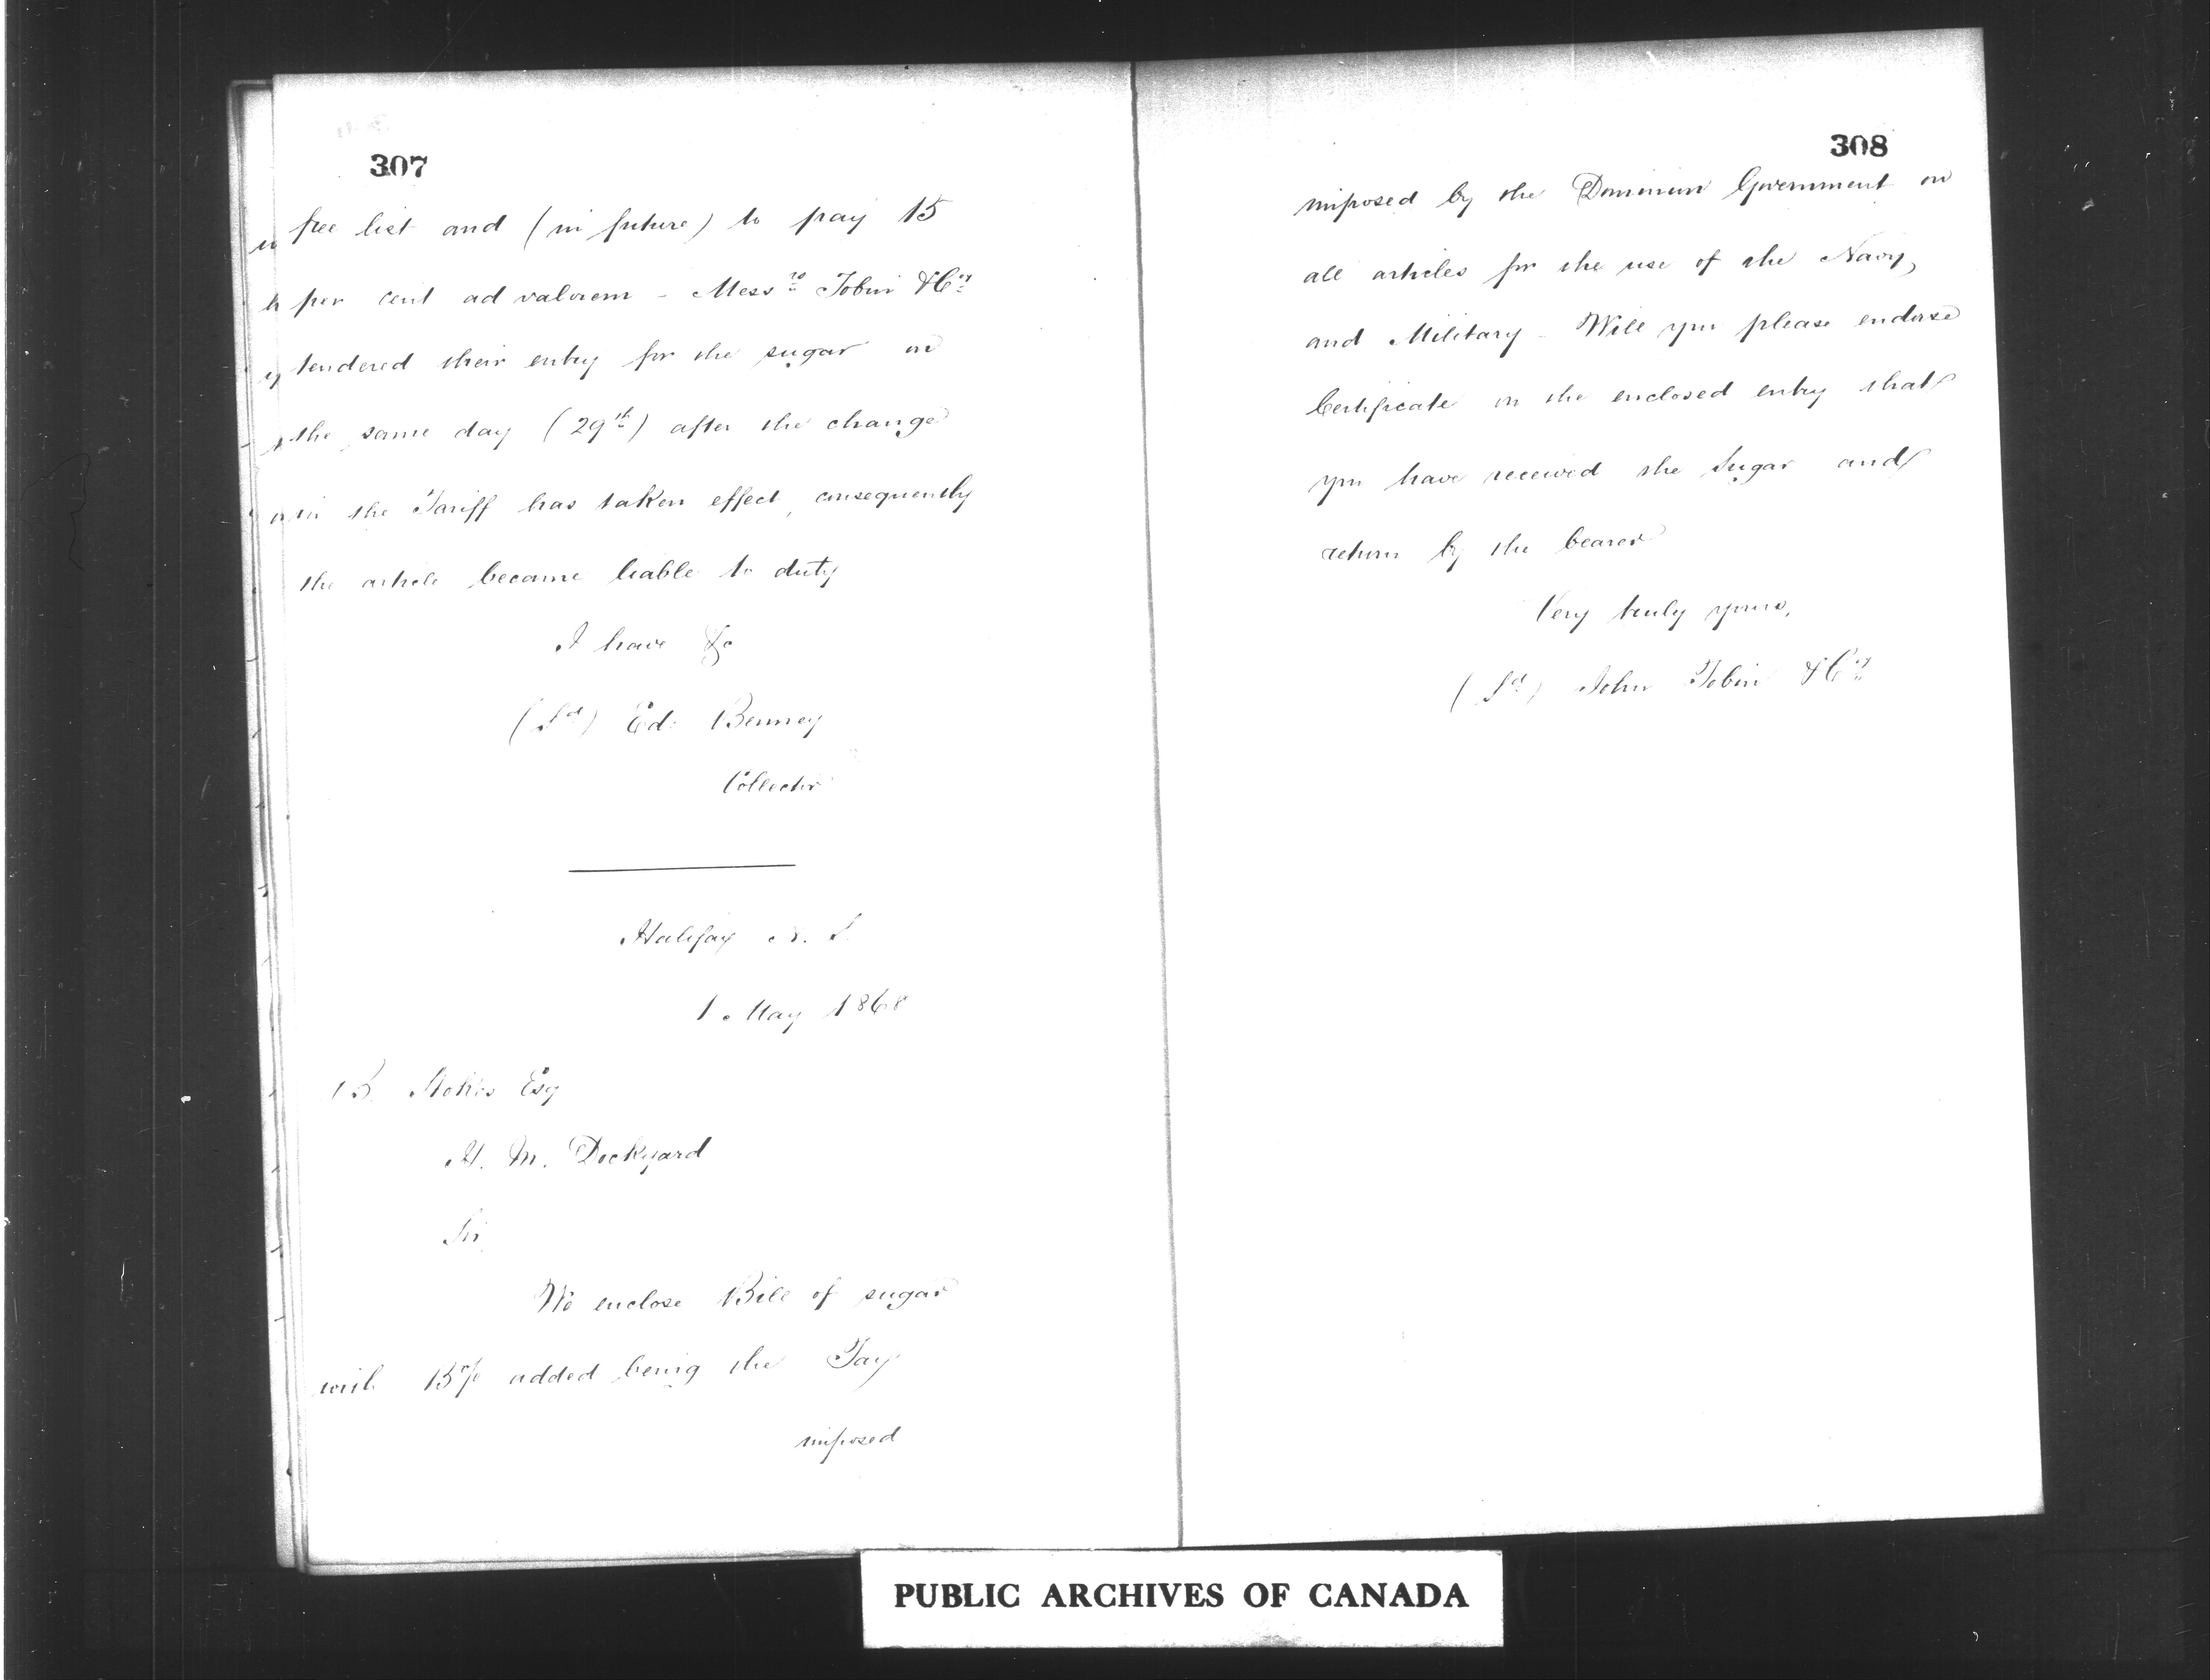 307
free list and (in future) to pay 15
per cent ad valorem - Messrs Tobin & Co
tendered their entry for the sugar on
the same day (29th) after the change
in the Tariff has taken effect, consequently
the article became liable to duty
I have &c
(Sd) Ed: Benney
Collector
Halifax N. S.
1 May 1868
B. Stokes Esq
H. M. Dockyard
Sir
We enclose Bill of sugar
with 15% added being the Tax
imposed
308
imposed by the Dominion Government on
all articles for the use of the Navy,
and Military - Will you please endorse
Certificate on the enclosed entry that
you have received the Sugar and
return by the bearer
Very truly yours,
(Sd) John Tobin & Co
PUBLIC ARCHIVES OF CANADA